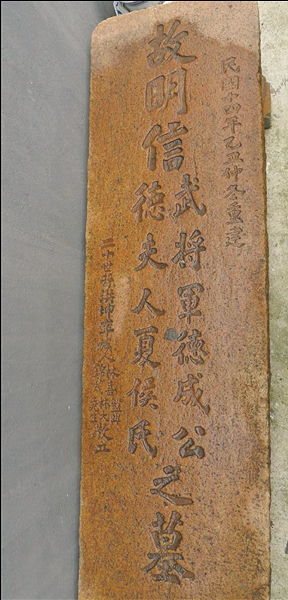 民國十四年乙丑仲冬重建
故明信武將軍德成公之墓
德夫人夏侯氏
二十世孫
敬立